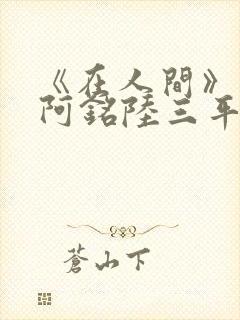 《在人間》
阿銘陸三平
蒼山下